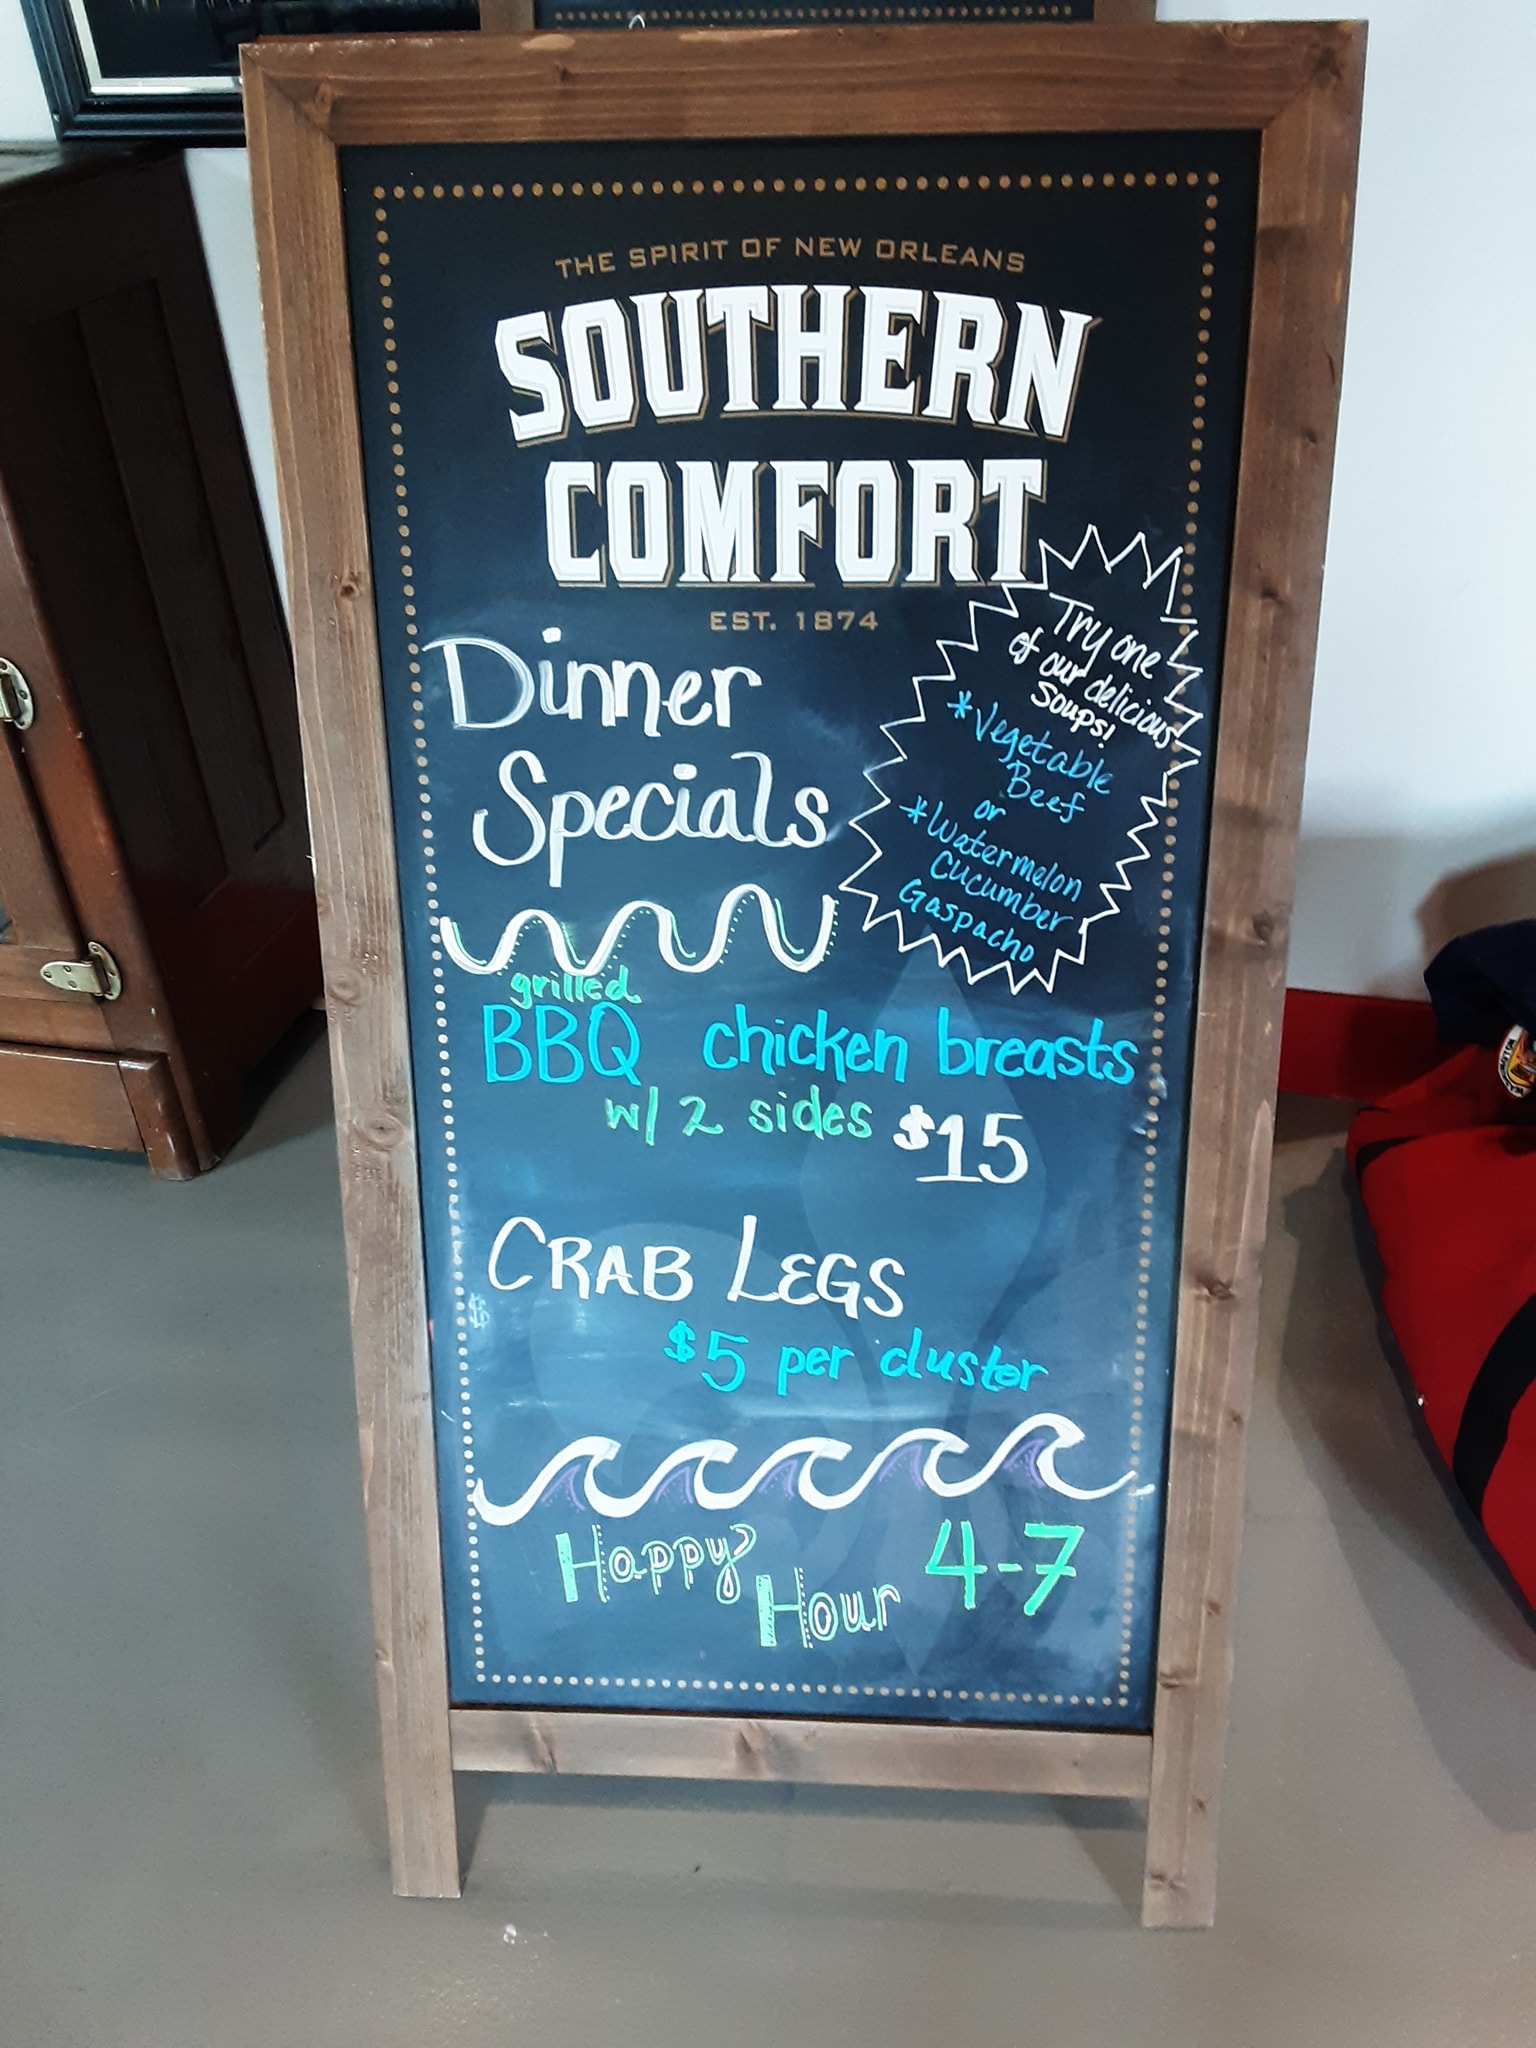 THE SPIRIT OF NEW ORLEANS
SOUTHERN
COMFORT
EST. 1874
Dinner
Specials
Try one
of our delicious
soups!
*Vegetable
Beef
or
*Watermelon
Cucumber
Gaspacho
grilled
BBQ chicken breasts
w/ 2 sides $15
CRAB LEGS
$5 per cluster
Happy
Hour 4-7